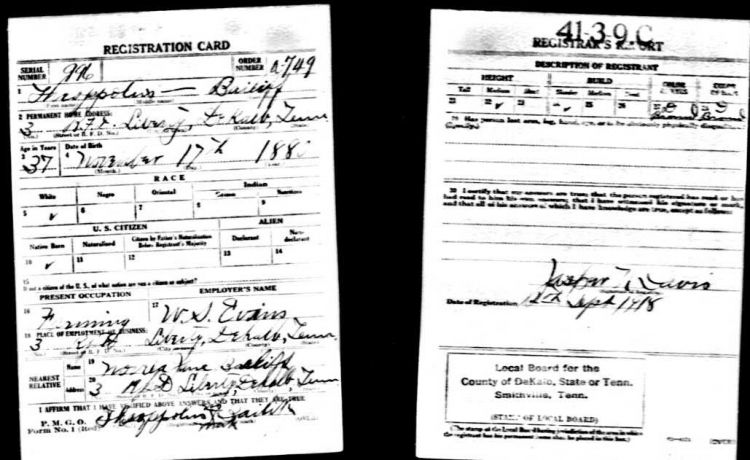 REGISTRATION CARD
SERIAL NUMBER 996 ORDER NUMBER A749
1 Theoppolus — Bailiff
2 PERMANENT HOME ADDRESS:
3 R.F.D. Liberty, Dekalb, Tenn
(Street or R. F. D. No.) (County)
Age in Years Date of Birth
3 37 4 November 17th 188
(Month.)
RACE
White Negro Oriental Indian
5 ✓ 6 7 8 9
U. S. CITIZEN ALIEN
Native Born Naturalized Citizen by Father's Naturalization Before Registrant's Majority Declarant Non-declarant
10 ✓ 11 12 13 14
15 If not a citizen of the U. S., of what nation are you a citizen or subject?
PRESENT OCCUPATION EMPLOYER'S NAME
16 Farming 17 W. S. Evans
18 PLACE OF EMPLOYMENT OR BUSINESS:
3 Liberty, Dekalb, Tenn
NEAREST RELATIVE Name 19 Bailiff
Address 20 3 Liberty, Dekalb, Tenn
I AFFIRM THAT I HAVE VERIFIED ABOVE ANSWERS AND THAT THEY ARE TRUE
P. M. G. O.
Form No. 1 (Red) Theoppolus Bailiff
mark
41-3-9.C
REGISTRAR'S REPORT
DESCRIPTION OF REGISTRANT
HEIGHT BUILD COLOR OF EYES COLOR OF HAIR
Tall Medium Short Slender Medium Stout
21 22 ✓ 23 24 ✓ 25 26 27 Brown 28 Brown
29 Has person lost arm, leg, hand, eye, or is he obviously physically disqualified?
(Specify.)
30 I certify that my answers are true; that the person registered has read or has
had read to him his own answers; that I have witnessed his signature or mark,
and that all of his answers of which I have knowledge are true, except as follows:
Davis
Date of Registration 12th Sept 1918
Local Board for the
County of DeKalb, State of Tenn.
Smithville, Tenn.
(STAMP OF LOCAL BOARD)
(The stamp of the Local Board having jurisdiction of the area in which
the registrant has his permanent home shall be placed in this box.)
(OVER)